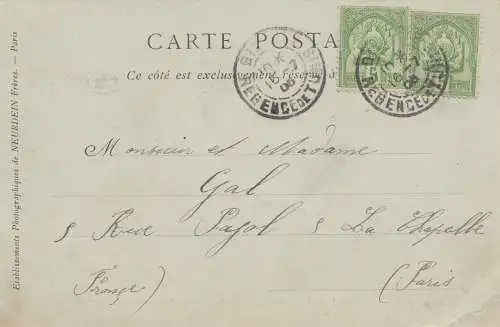 CARTE POSTA
Ce côté est exclusivement réservé à
REGENCE DE TUNIS
REGENCE DE TUNIS
Monsieur et Madame
Gal
5 Rue Pajol 5 La Chapelle
France) (Paris
Etablissements Photographiques de NEURDEIN Frères. — Paris